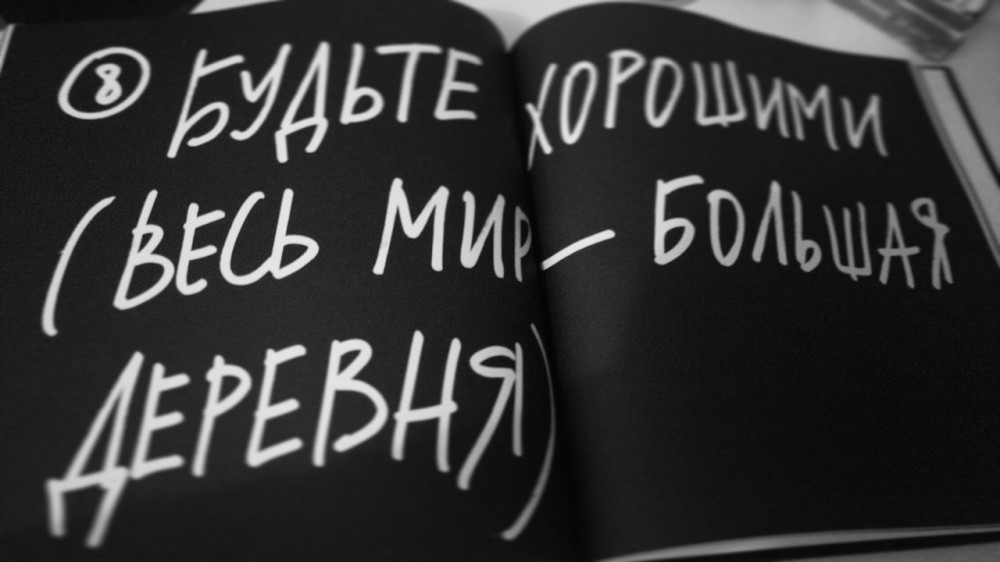 ⑧ БУДЬТЕ ХОРОШИМИ
(ВЕСЬ МИР – БОЛЬШАЯ
ДЕРЕВНЯ)